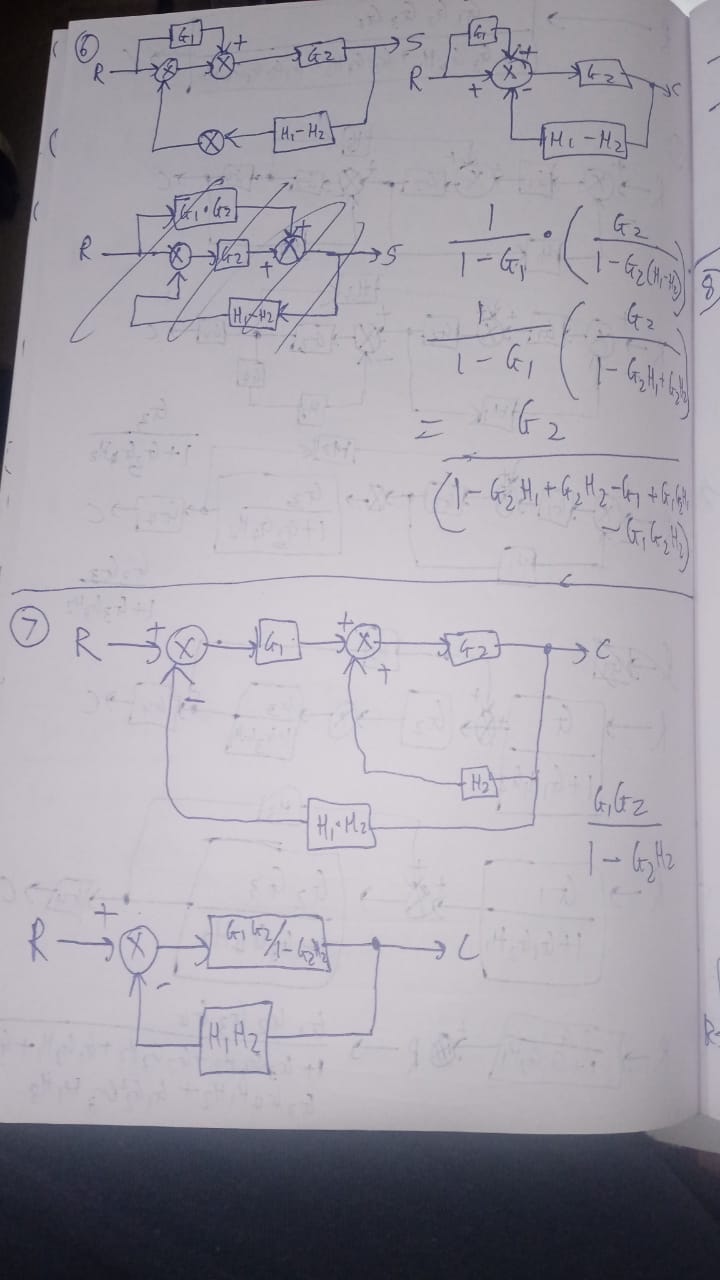 6
G₁
+
R
X
X
G₂
S
X
H₁-H₂
G₁
+
R
+
X
-
G₂
C
H₁-H₂
G₁·G₂
+
R
X
G₂
+
X
S
H₁-H₂
1/(1-G₁) · (G₂/(1-G₂(H₁-H₂)))
1/(1-G₁) (G₂/(1-G₂H₁+G₂H₂))
= G₂
(1-G₂H₁+G₂H₂-G₁+G₁G₂H₁
-G₁G₂H₂)
8
7
R
+
X
-
G₁
+
X
+
G₂
C
H₂
H₁·H₂
G₁G₂
1-G₂H₂
R
+
X
-
G₁G₂/1-G₂H₂
C
H₁H₂